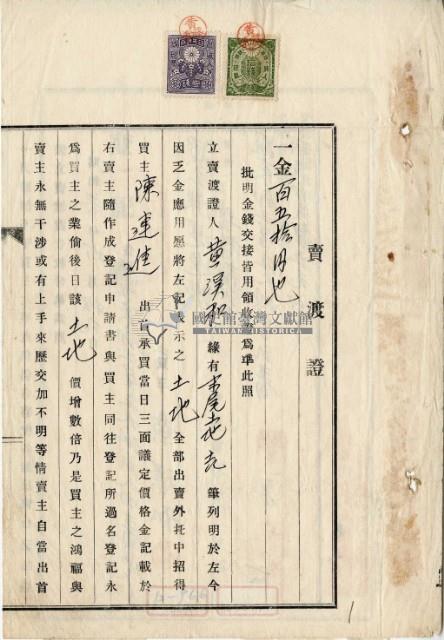 賣渡證
一金百五拾円也
批明金錢交接皆用領收證為準此照
立賣渡證人黃溪和緣有末尾土地壱筆列明於左今
因乏金應用愿將左記表示之土地全部出賣外托中招得
買主陳連進出首承買當日三面議定價格金記載於
右賣主隨作成登記申請書與買主同往登記所過名登記永
為買主之業倘後日該土地價增數倍乃是買主之鴻福與
賣主永無干涉或有上手來歷交加不明等情賣主自當出首
國史館臺灣文獻館
TAIWAN HISTORICA
1